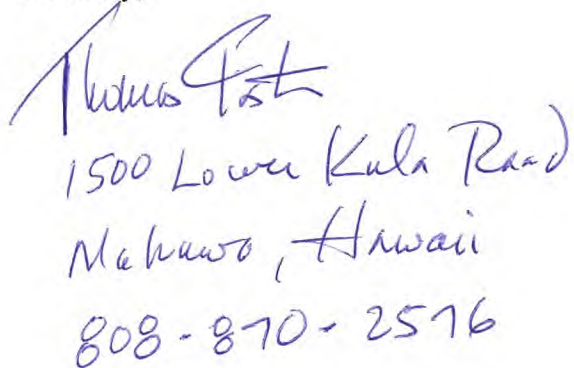 Thomas
1500 Lower Kula Road
Makawo, Hawaii
808-870-2576